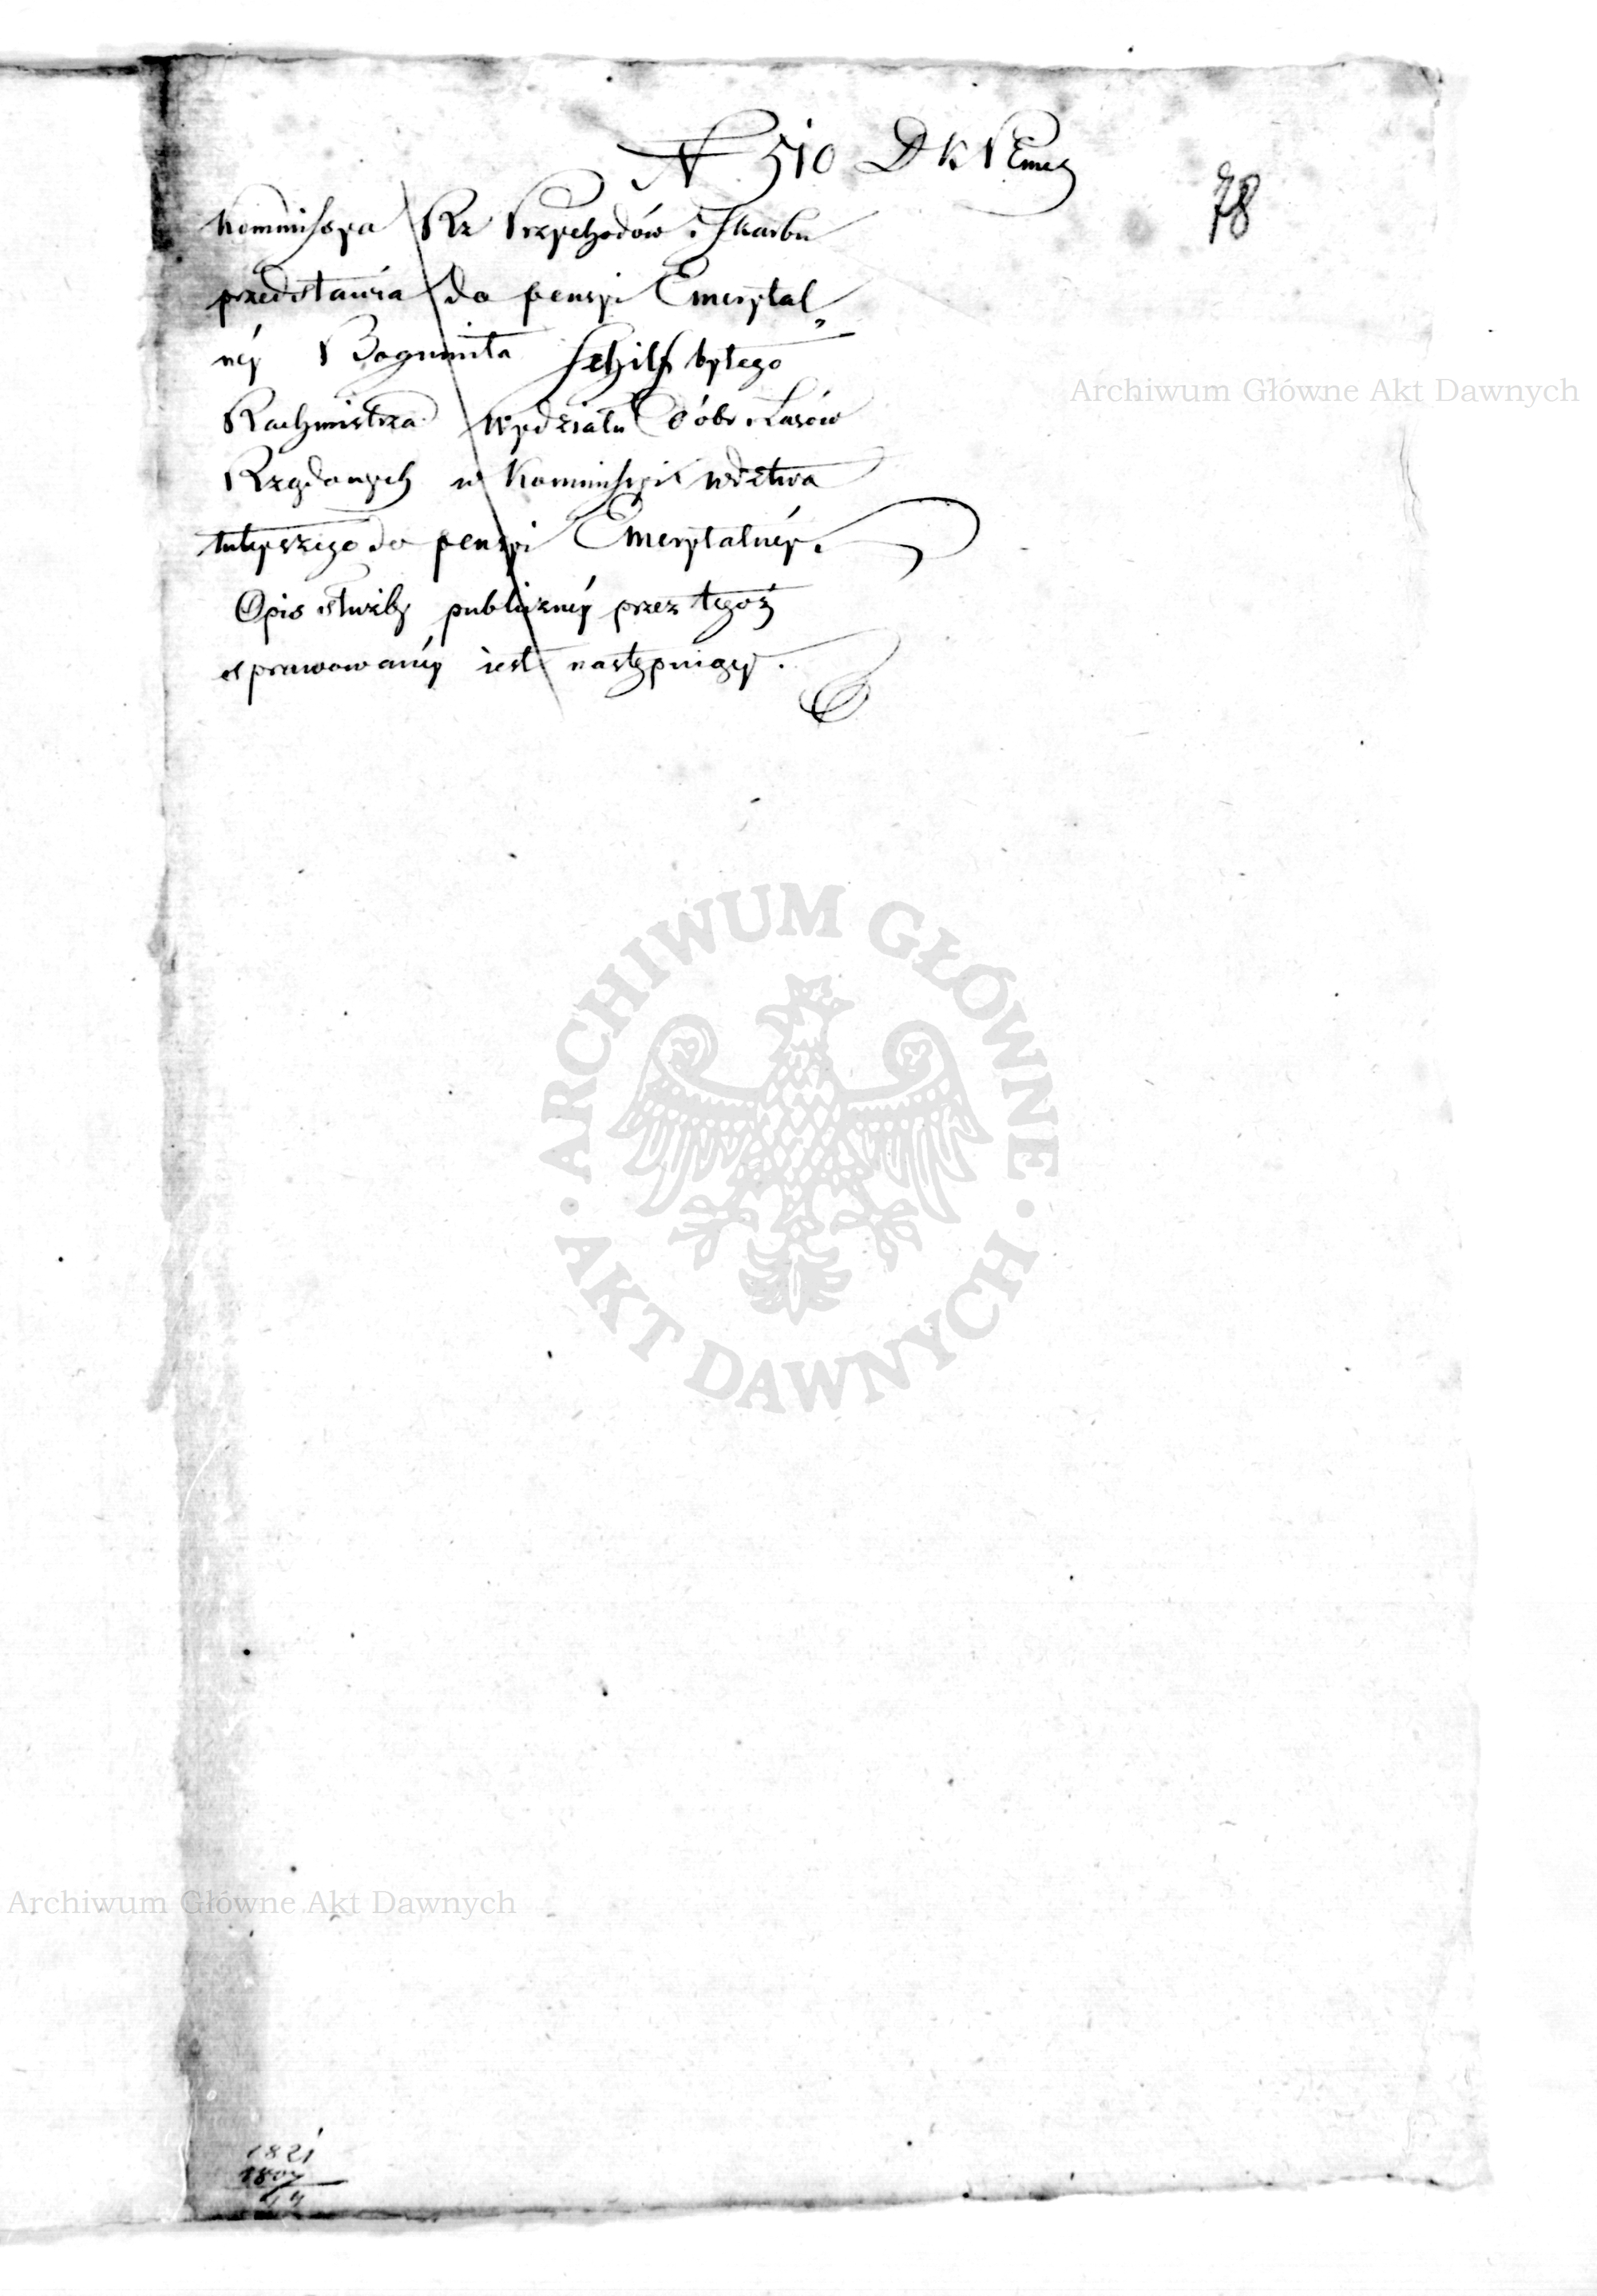 N 510 D K P Emer
78
Kommissya Rz Przychodów i Skarbu
przedstawia do pensyi Emerytal
néy Bogumiła Schilf byłego
Rachmistrza Wydziału Dóbr i Lasów
Rządowych w Kommissyi Wdztwa
tuteyszego do pensyi Emerytalnéy.
Opis służby publicznéy przez tegoż
sprawowanéy iest następuiący.
1821
1807
14
Archiwum Główne Akt Dawnych
ARCHIWUM GŁÓWNE
AKT DAWNYCH
Archiwum Główne Akt Dawnych